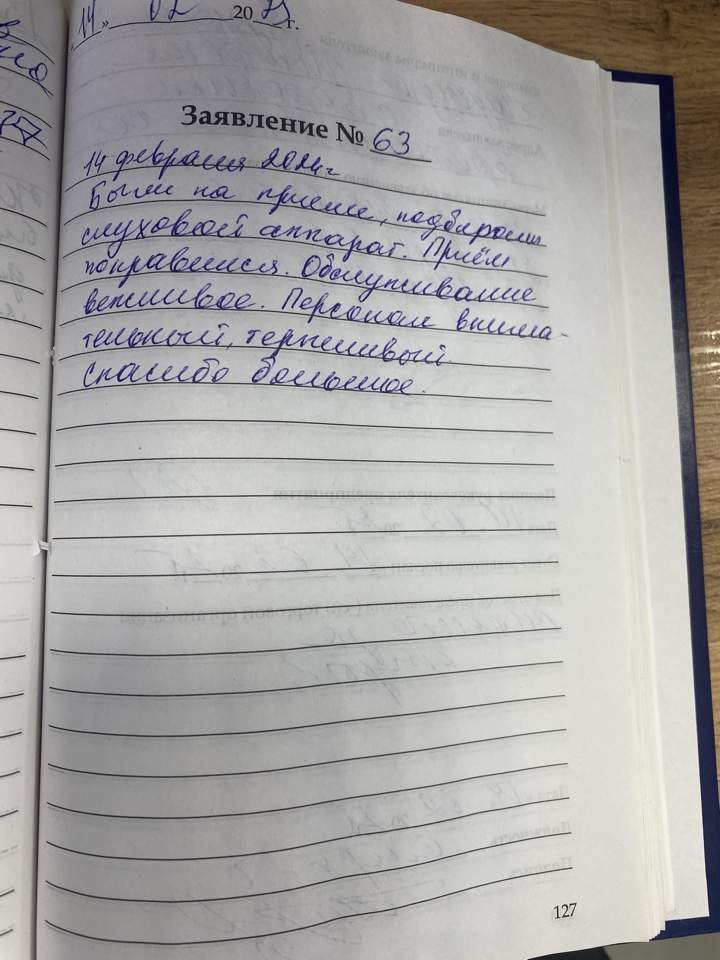 14» 02 20 г.
Заявление № 63
14 февраля 2024г
Были на приеме, подбирали
слуховой аппарат. Приём
понравился. Обслуживание
вежливое. Персонал внима-
тельный, терпеливый.
Спасибо большое.
127